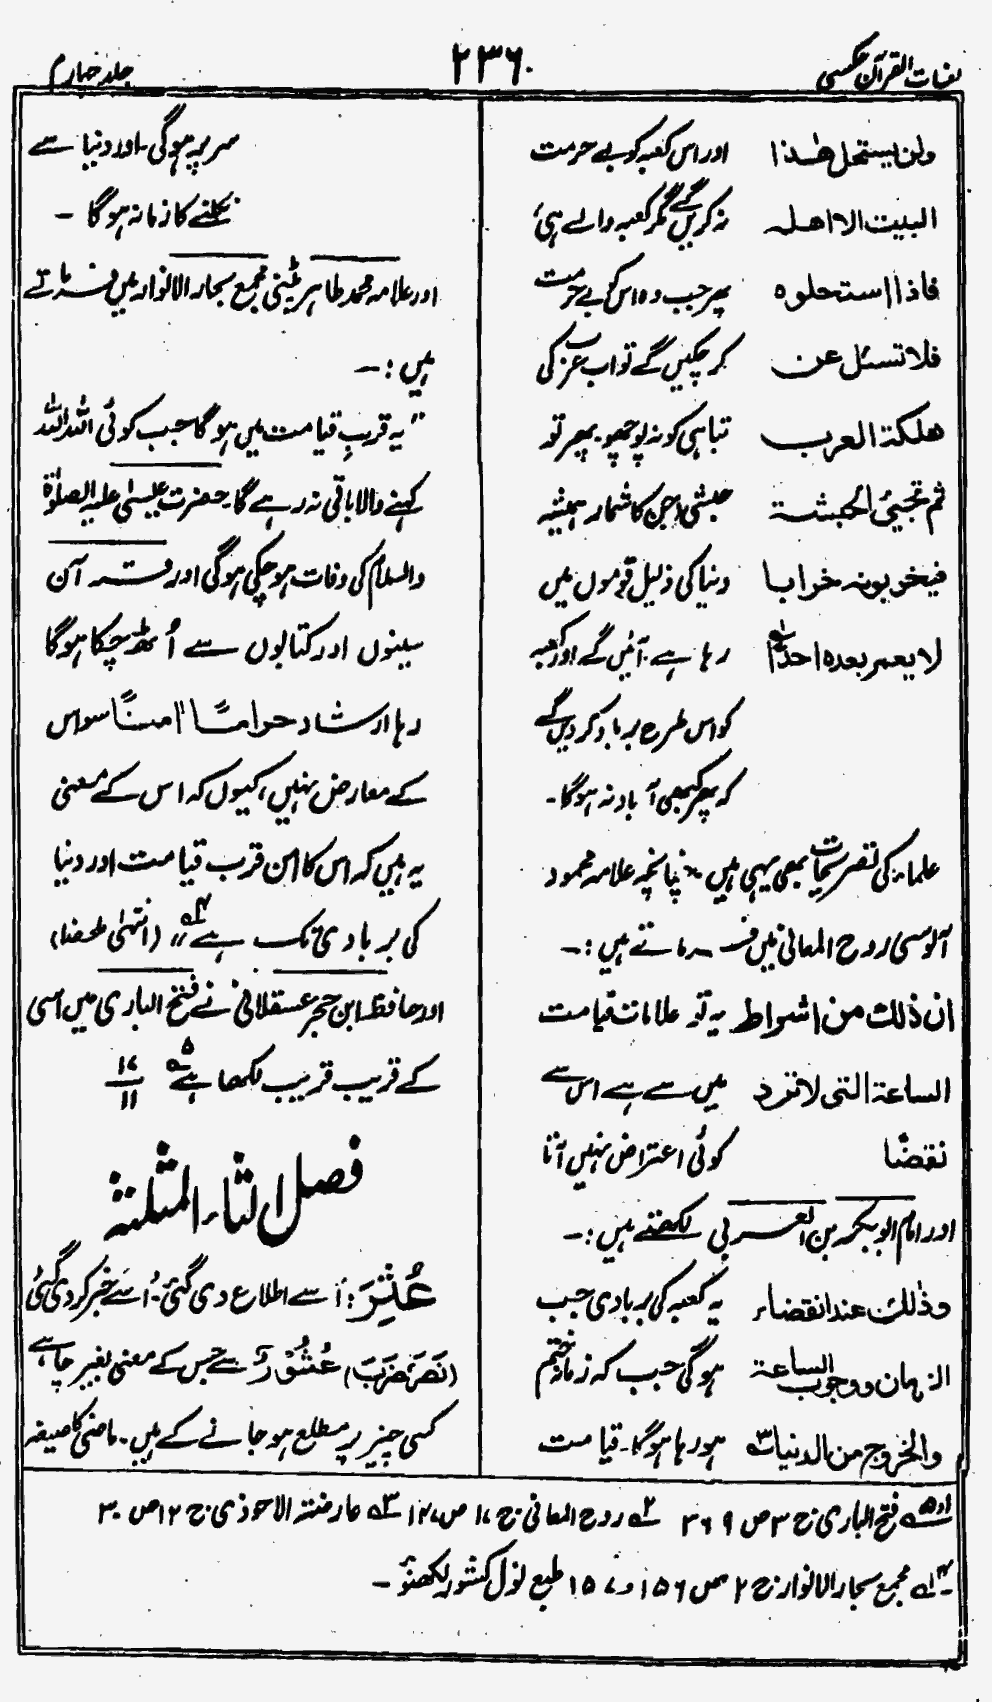 لغات القرآن عکسی
۲۳۶
جلد چہارم
ولن یستحل ھذا اور اس کعبہ کو بے حرمت
البیت الا اھلہ نہ کریں گے مگر کعبہ والے ہی
فاذا استحلوہ پھر جب وہ اس کو بے حرمت
فلا تسئل عن کر چکیں گے تو اب عرب کی
ھلکۃ العرب تباہی کو نہ پوچھو۔ پھر تو
ثم تجیئ الحبشۃ حبشی (جن کا شمار ہمیشہ
فیخربونہ خرابا دنیا کی ذلیل قوموں میں
لا یعمر بعدہ احدًا رہا ہے) آئیں گے اور کعبہ
کو اس طرح برباد کر دیں گے
کہ پھر کبھی آباد نہ ہوگا۔
علماء کی تصریحات بھی یہی ہیں۔ چنانچہ علامہ محمود
آلوسی روح المعانی میں فرماتے ہیں :۔
ان ذلک من اشراط یہ تو علامات قیامت
الساعۃ التی لا تردد میں سے ہے اس سے
نقضًا کوئی اعتراض نہیں آتا
اور امام ابو بکر بن العربی لکھتے ہیں :۔
وذلک عند انقضاء یہ کعبہ کی بربادی جب
الزمان ووجوب الساعۃ ہوگی جب کہ زمانہ ختم
والخروج من الدنیا ۳ ہو رہا ہوگا۔ قیامت
سر پر ہوگی۔ اور دنیا سے
نکلنے کا زمانہ ہوگا ۔
اور علامہ محمد طاہر پٹنی مجمع بحار الانوار میں فرماتے
ہیں :۔
"یہ قربِ قیامت میں ہوگا جب کوئی اللہ اللہ
کہنے والا باقی نہ رہے گا۔ حضرت عیسیٰ علیہ الصلوٰۃ
والسلام کی وفات ہو چکی ہوگی اور قرآن
سینوں اور کتابوں سے اُٹھ چکا ہوگا
رہا ارشاد حرامًا اٰمنًا سو اس
کے معارض نہیں، کیوں کہ اس کے معنی
یہ ہیں کہ اس کا امن قرب قیامت اور دنیا
کی بربادی تک ہے" ۴ (انتہیٰ ملخصا)
اور حافظ ابن حجر عسقلانی نے فتح الباری میں اسی
کے قریب قریب لکھا ہے ۵ ۱۷/۱۱
فصل الثاء المثلثۃ
عُثِرَ : اُسے اطلاع دی گئی۔ اُسے خبر کر دی گئی
(نَصَرَ، ضَرَبَ) عُثُوْرٌ سے جس کے معنی بغیر چاہے
کسی چیز پر مطلع ہو جانے کے ہیں۔ ماضی کا صیغہ
۱ و ۵ فتح الباری ج ۳ ص ۳۶۹ ۲ روح المعانی ج ۱۷ ص ۱۲۷ ۳ عارضۃ الاحوذی ج ۱۲ ص ۳۰
۴ مجمع بحار الانوار ج ۲ ص ۱۵۶ و ۱۵۷ طبع نول کشور لکھنؤ ۔